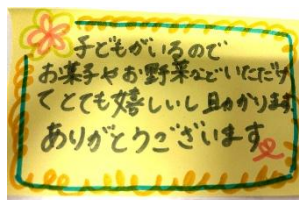 子どもがいるので
お菓子やお野菜などいただけ
てとても嬉しいし助かります
ありがとうございます